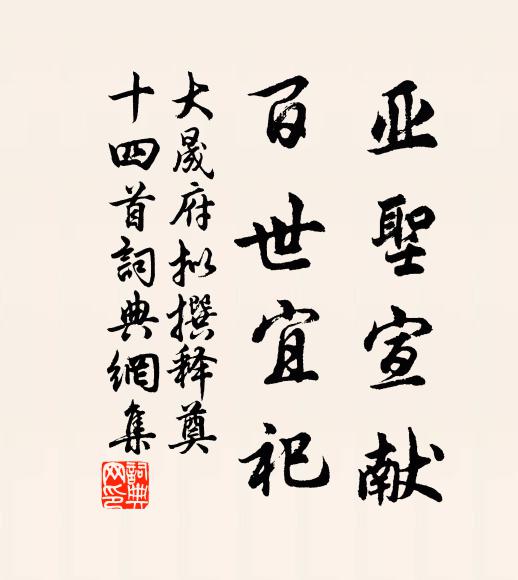 亚聖宣献
百世宜祀
大晟府拟撰释奠
十四首詞典網集
詞典网印